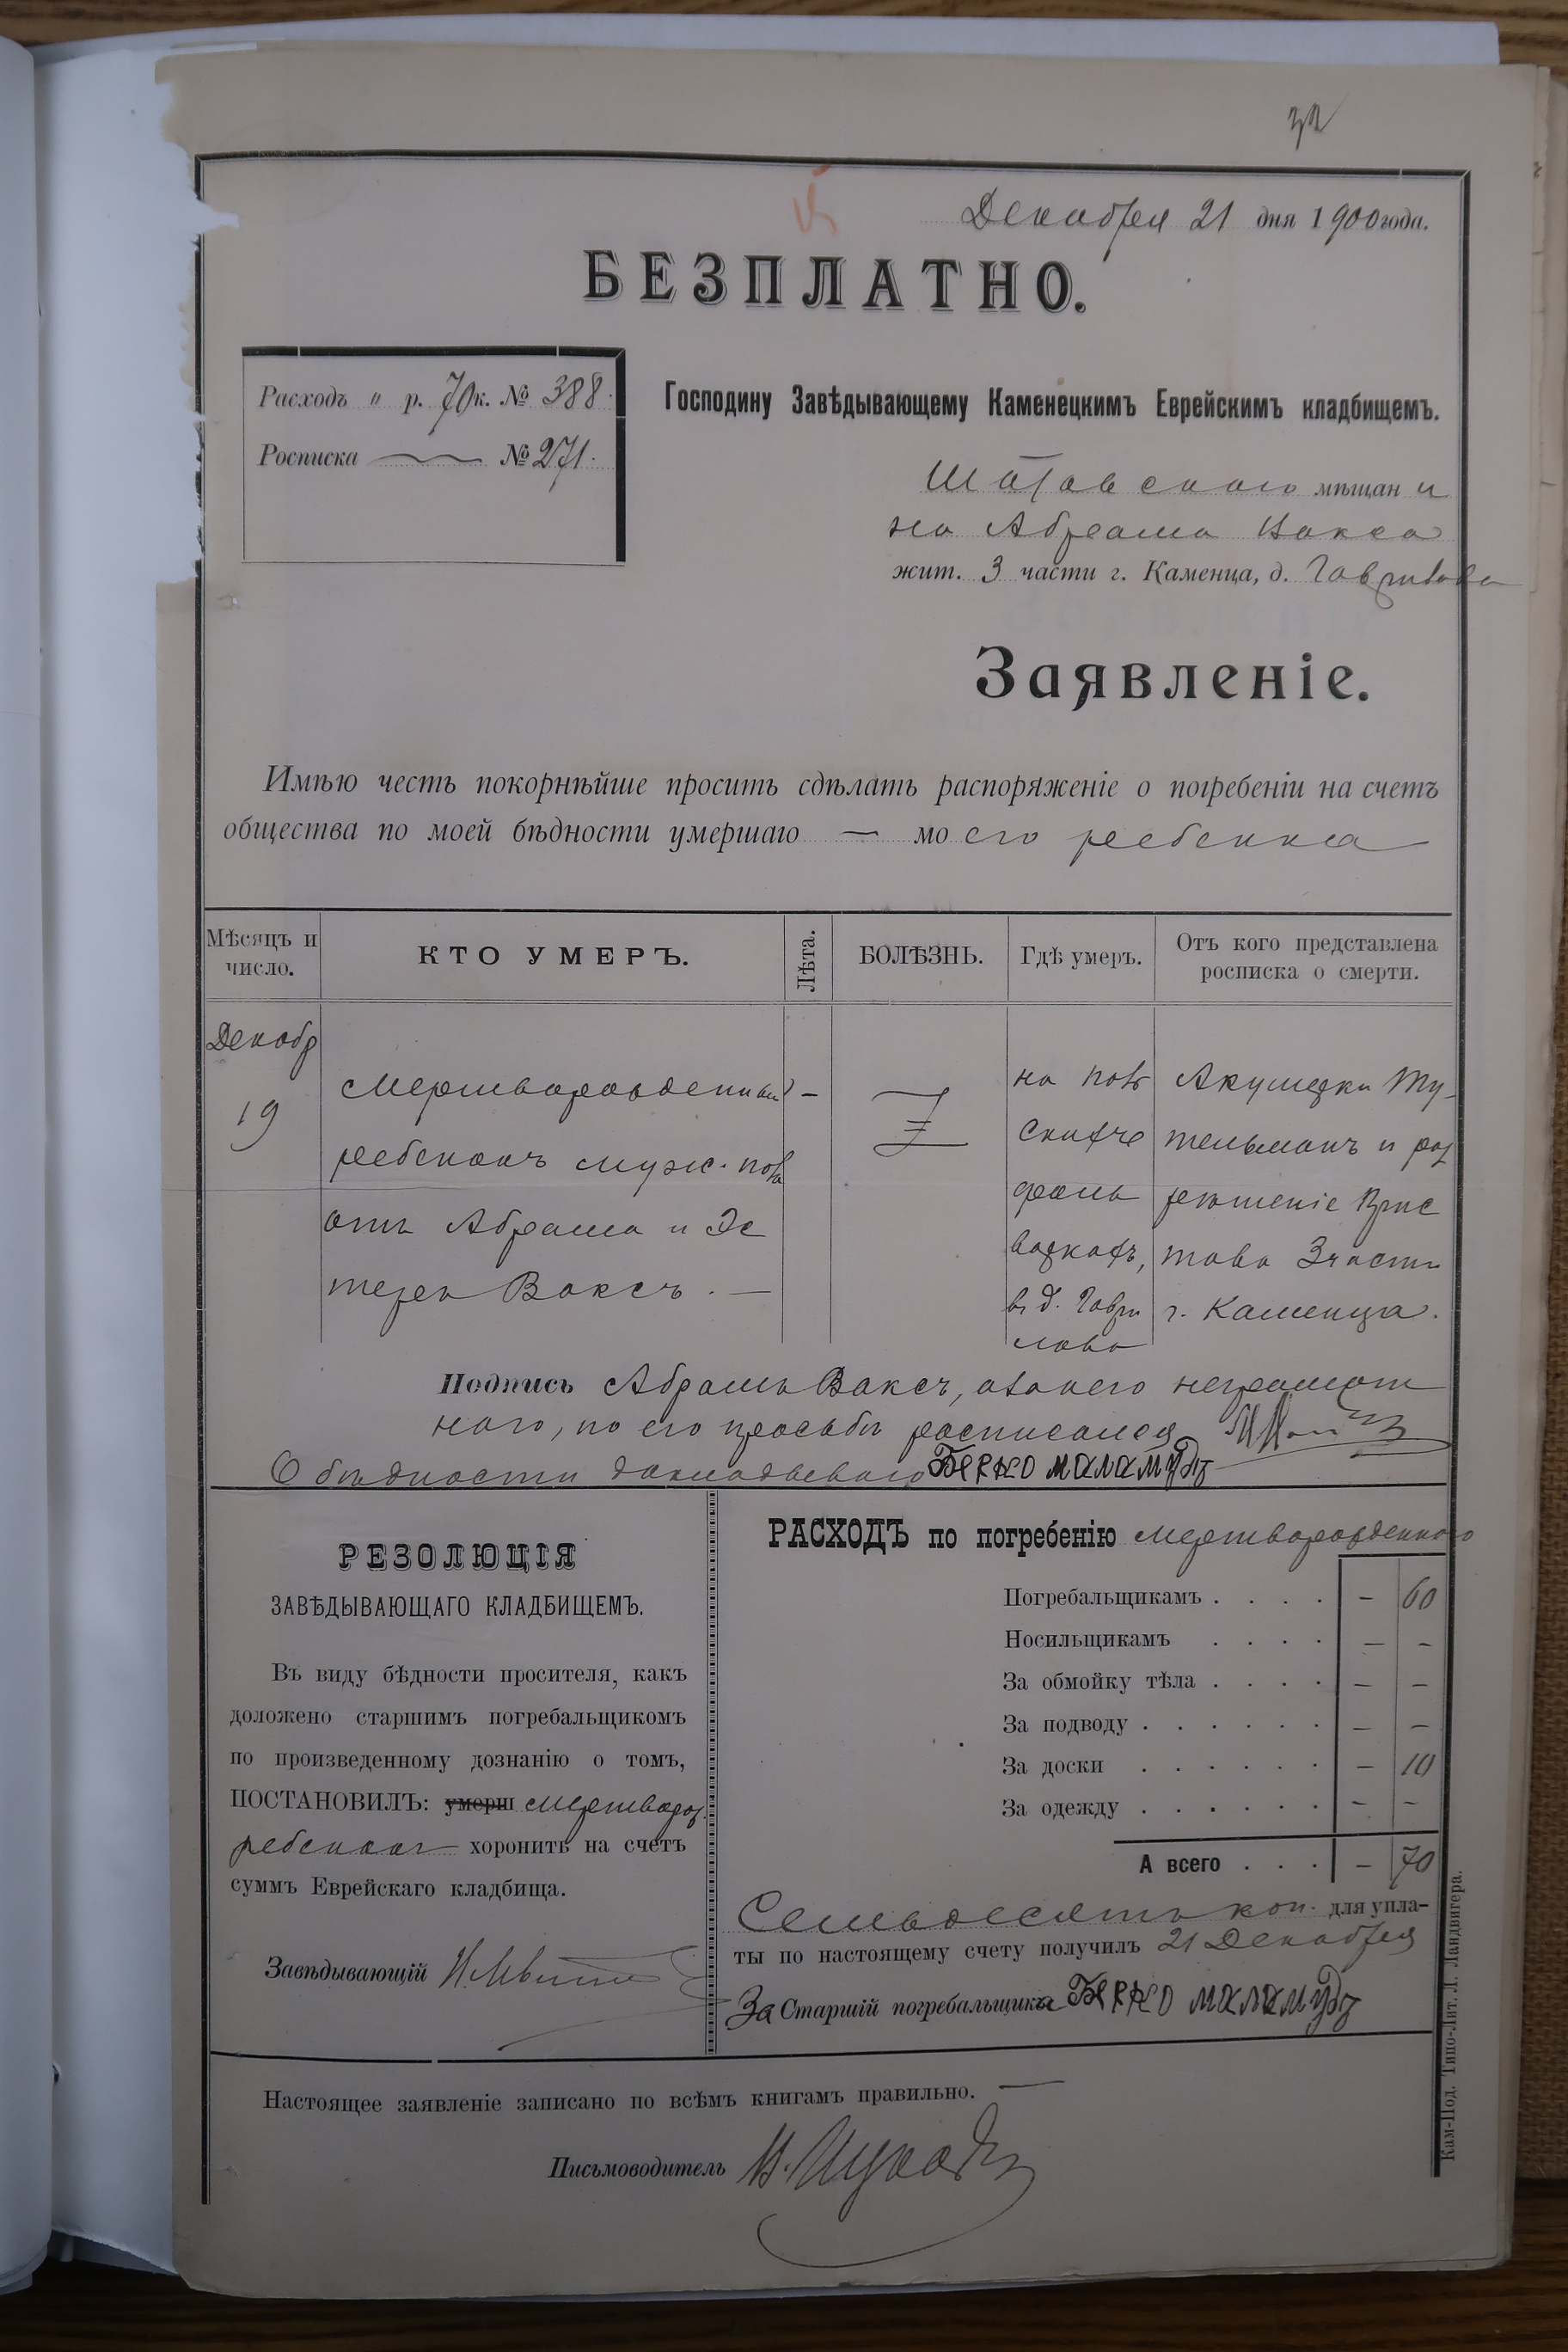 32
Декабря 21 дня 1900 года.
БЕЗПЛАТНО.
Расходъ " р. 70 к. № 388.
Росписка № 271.
Господину Завѣдывающему Каменецкимъ Еврейскимъ кладбищемъ.
Шатавского мѣщани
на Абрама Вакса
жит. 3 части г. Каменца, д. Гаврилова
Заявленіе.
Имѣю честь покорнѣйше просить сдѣлать распоряженіе о погребеніи на счетъ
общества по моей бѣдности умершаго — моего ребенка
Мѣсяцъ и число.
КТО УМЕРЪ.
Лѣта.
БОЛѢЗНЬ.
Гдѣ умеръ.
Отъ кого представлена росписка о смерти.
Декабр
19
Мертворожденный
ребенокъ муж. пола
отъ Абрама и Эс
теры Ваксъ. —
–
на
в д. Гаври
лова
Акушерки Ту-
тельманъ и раз
рѣшеніе Прис
тава 3 части
г. Каменца.
Подпись Абрамъ Ваксъ, а за него неграмот
ного, по его просьбѣ расписался
О бѣдности докладывалъ Берко маламудъ
РЕЗОЛЮЦІЯ
ЗАВѢДЫВАЮЩАГО КЛАДБИЩЕМЪ.
Въ виду бѣдности просителя, какъ
доложено старшимъ погребальщикомъ
по произведенному дознанію о томъ,
ПОСТАНОВИЛЪ: умерш мертворож.
ребенокъ хоронить на счетъ
суммъ Еврейскаго кладбища.
Завѣдывающій
РАСХОДЪ по погребенію мертворожденного
Погребальщикамъ . . . . – 60
Носильщикамъ . . . . – –
За обмойку тѣла . . . . – –
За подводу . . . . . . – –
За доски . . . . . . – 10
За одежду . . . . . . – –
А всего . . . – 70
Семьдесятъ коп. для упла-
ты по настоящему счету получилъ 21 Декабря
За Старшій погребальщика Берко маламудъ
Настоящее заявленіе записано по всѣмъ книгамъ правильно. —
Письмоводитель
Кам-Под. Типо-Лит. Л. Ландвигера.